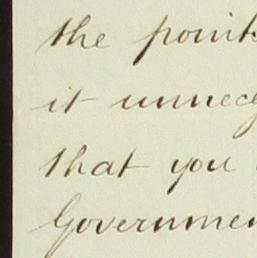 the point
it unnec
that you
Governmen